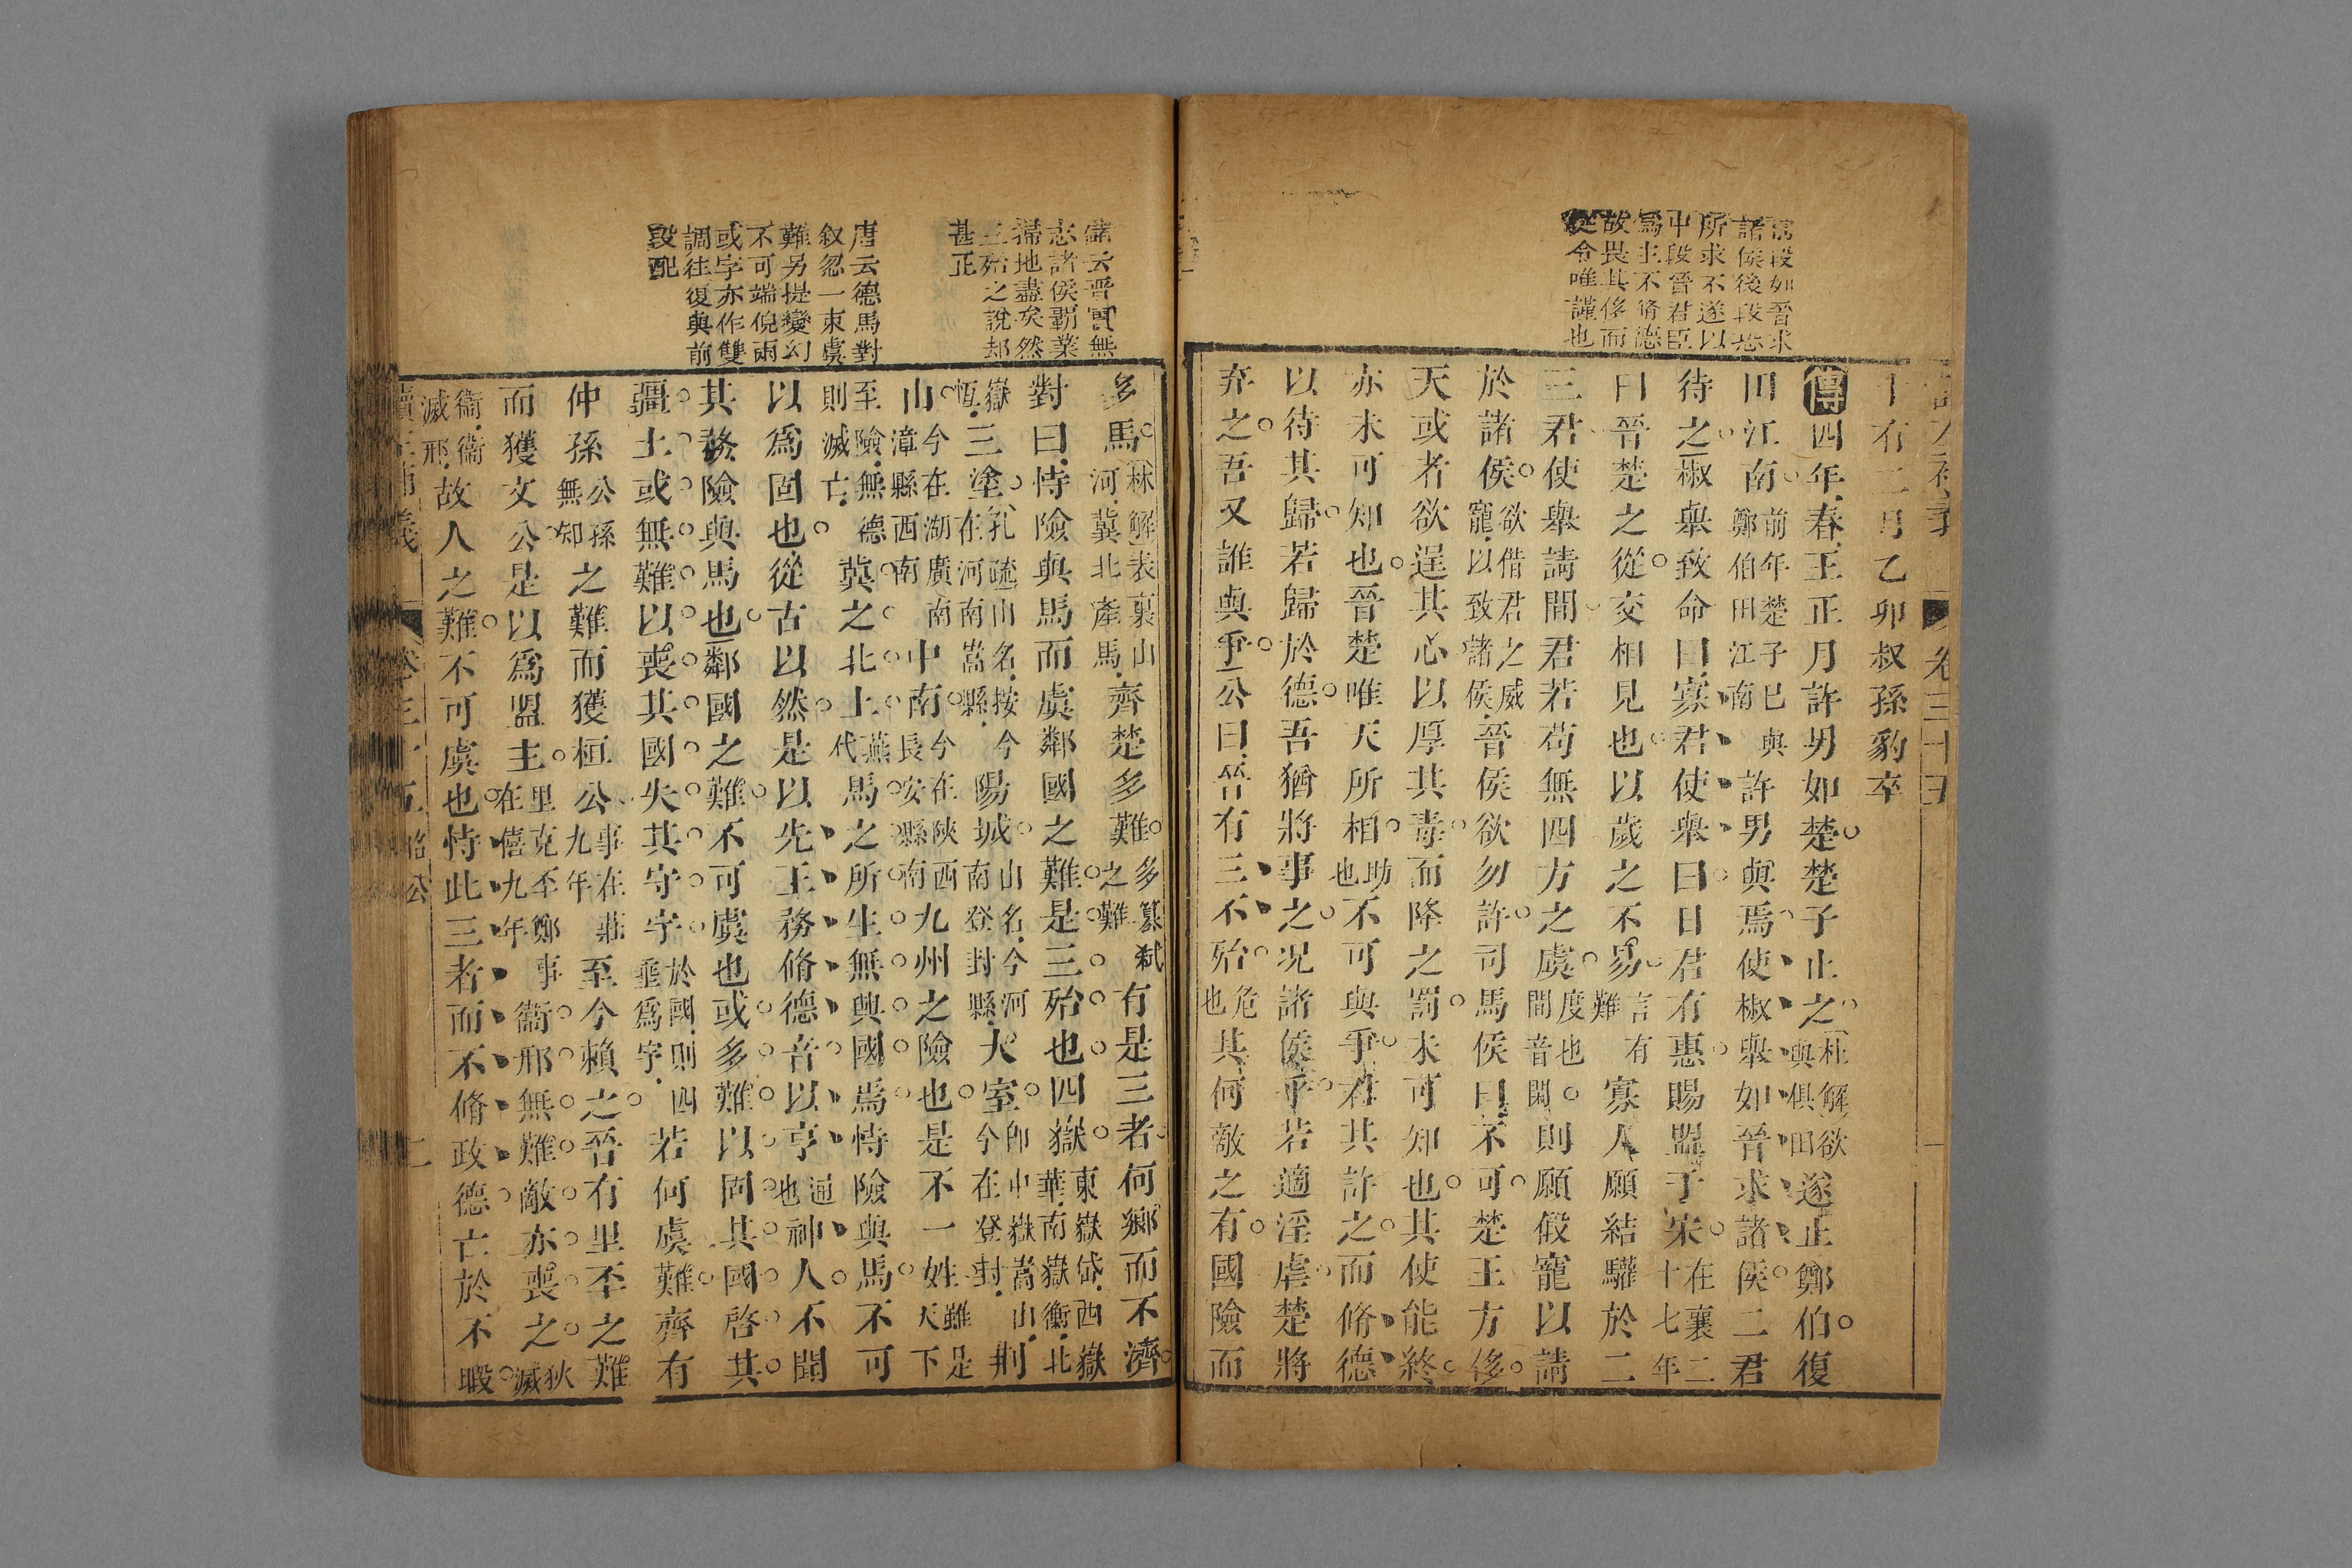 讀左補義 卷三十五 一
十有二月乙卯叔孫豹卒
傳四年春王正月許男如楚楚子止之杜解欲與俱田遂止鄭伯復
田江南前年楚子已與鄭伯田江南許男與焉使椒舉如晉求諸侯二君
待之椒舉致命曰寡君使舉曰日君有惠賜盟于宋在襄二十七年
曰晉楚之從交相見也以歲之不易言有難寡人願結驩於二
三君使舉請間君若苟無四方之虞度也間音閑則願假寵以請
於諸侯欲借君之威寵以致諸侯晉侯欲勿許司馬侯曰不可楚王方侈
天或者欲逞其心以厚其毒而降之罰未可知也其使能終
亦未可知也晉楚唯天所相助也不可與爭君其許之而脩德
以待其歸若歸於德吾猶將事之況諸侯乎若適淫虐楚將
弃之吾又誰與爭公曰晉有三不殆危也其何敵之有國險而
諸侯後段恐
所求不遂以
中段晉君臣
爲主不脩德
故畏其侈而
從令唯謹也
多馬林解表裏山河冀北產馬齊楚多難多篡弒之難有是三者何鄉而不濟
對曰恃險與馬而虞鄰國之難是三殆也四嶽東嶽岱西嶽華南嶽衡北
嶽恆三塗孔疏山名按今在河南嵩縣陽城山名今河南登封縣大室即中嶽嵩山今在登封荆
山今在湖廣南漳縣西南中南今在陝西長安縣南九州之險也是不一姓雖是天下
至險無德則滅亡冀之北土燕代馬之所生無興國焉恃險與馬不可
以爲固也從古以然是以先王務脩德音以亨通也神人不聞
其務險與馬也鄰國之難不可虞也或多難以固其國啓其
疆土或無難以喪其國失其守宇於國則四垂爲宇若何虞難齊有
仲孫公孫無知之難而獲桓公事在莊九年至今賴之晉有里丕之難
而獲文公是以爲盟主里克丕鄭事在僖九年衞邢無難敵亦喪之狄滅
衞衞滅邢故人之難不可虞也恃此三者而不脩政德亡於不暇
儲云晉實無
志諸侯霸業
掃地盡矣然
三殆之說却
甚正
唐云德馬對
叙忽一束虞
難另提變幻
不可端倪兩
或字亦作雙
調往復與前
段配
讀左補義 卷三十五 昭公 二